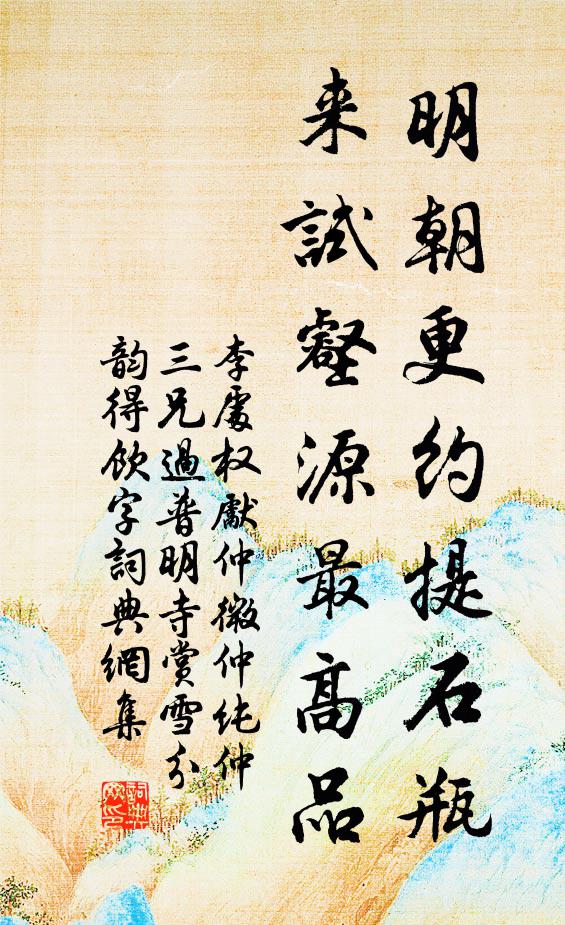 明朝更約提石瓶
来試壑源最高品
李處权獻仲微仲纯仲
三兄過普明寺赏雪分
韵得飲字詞典網集